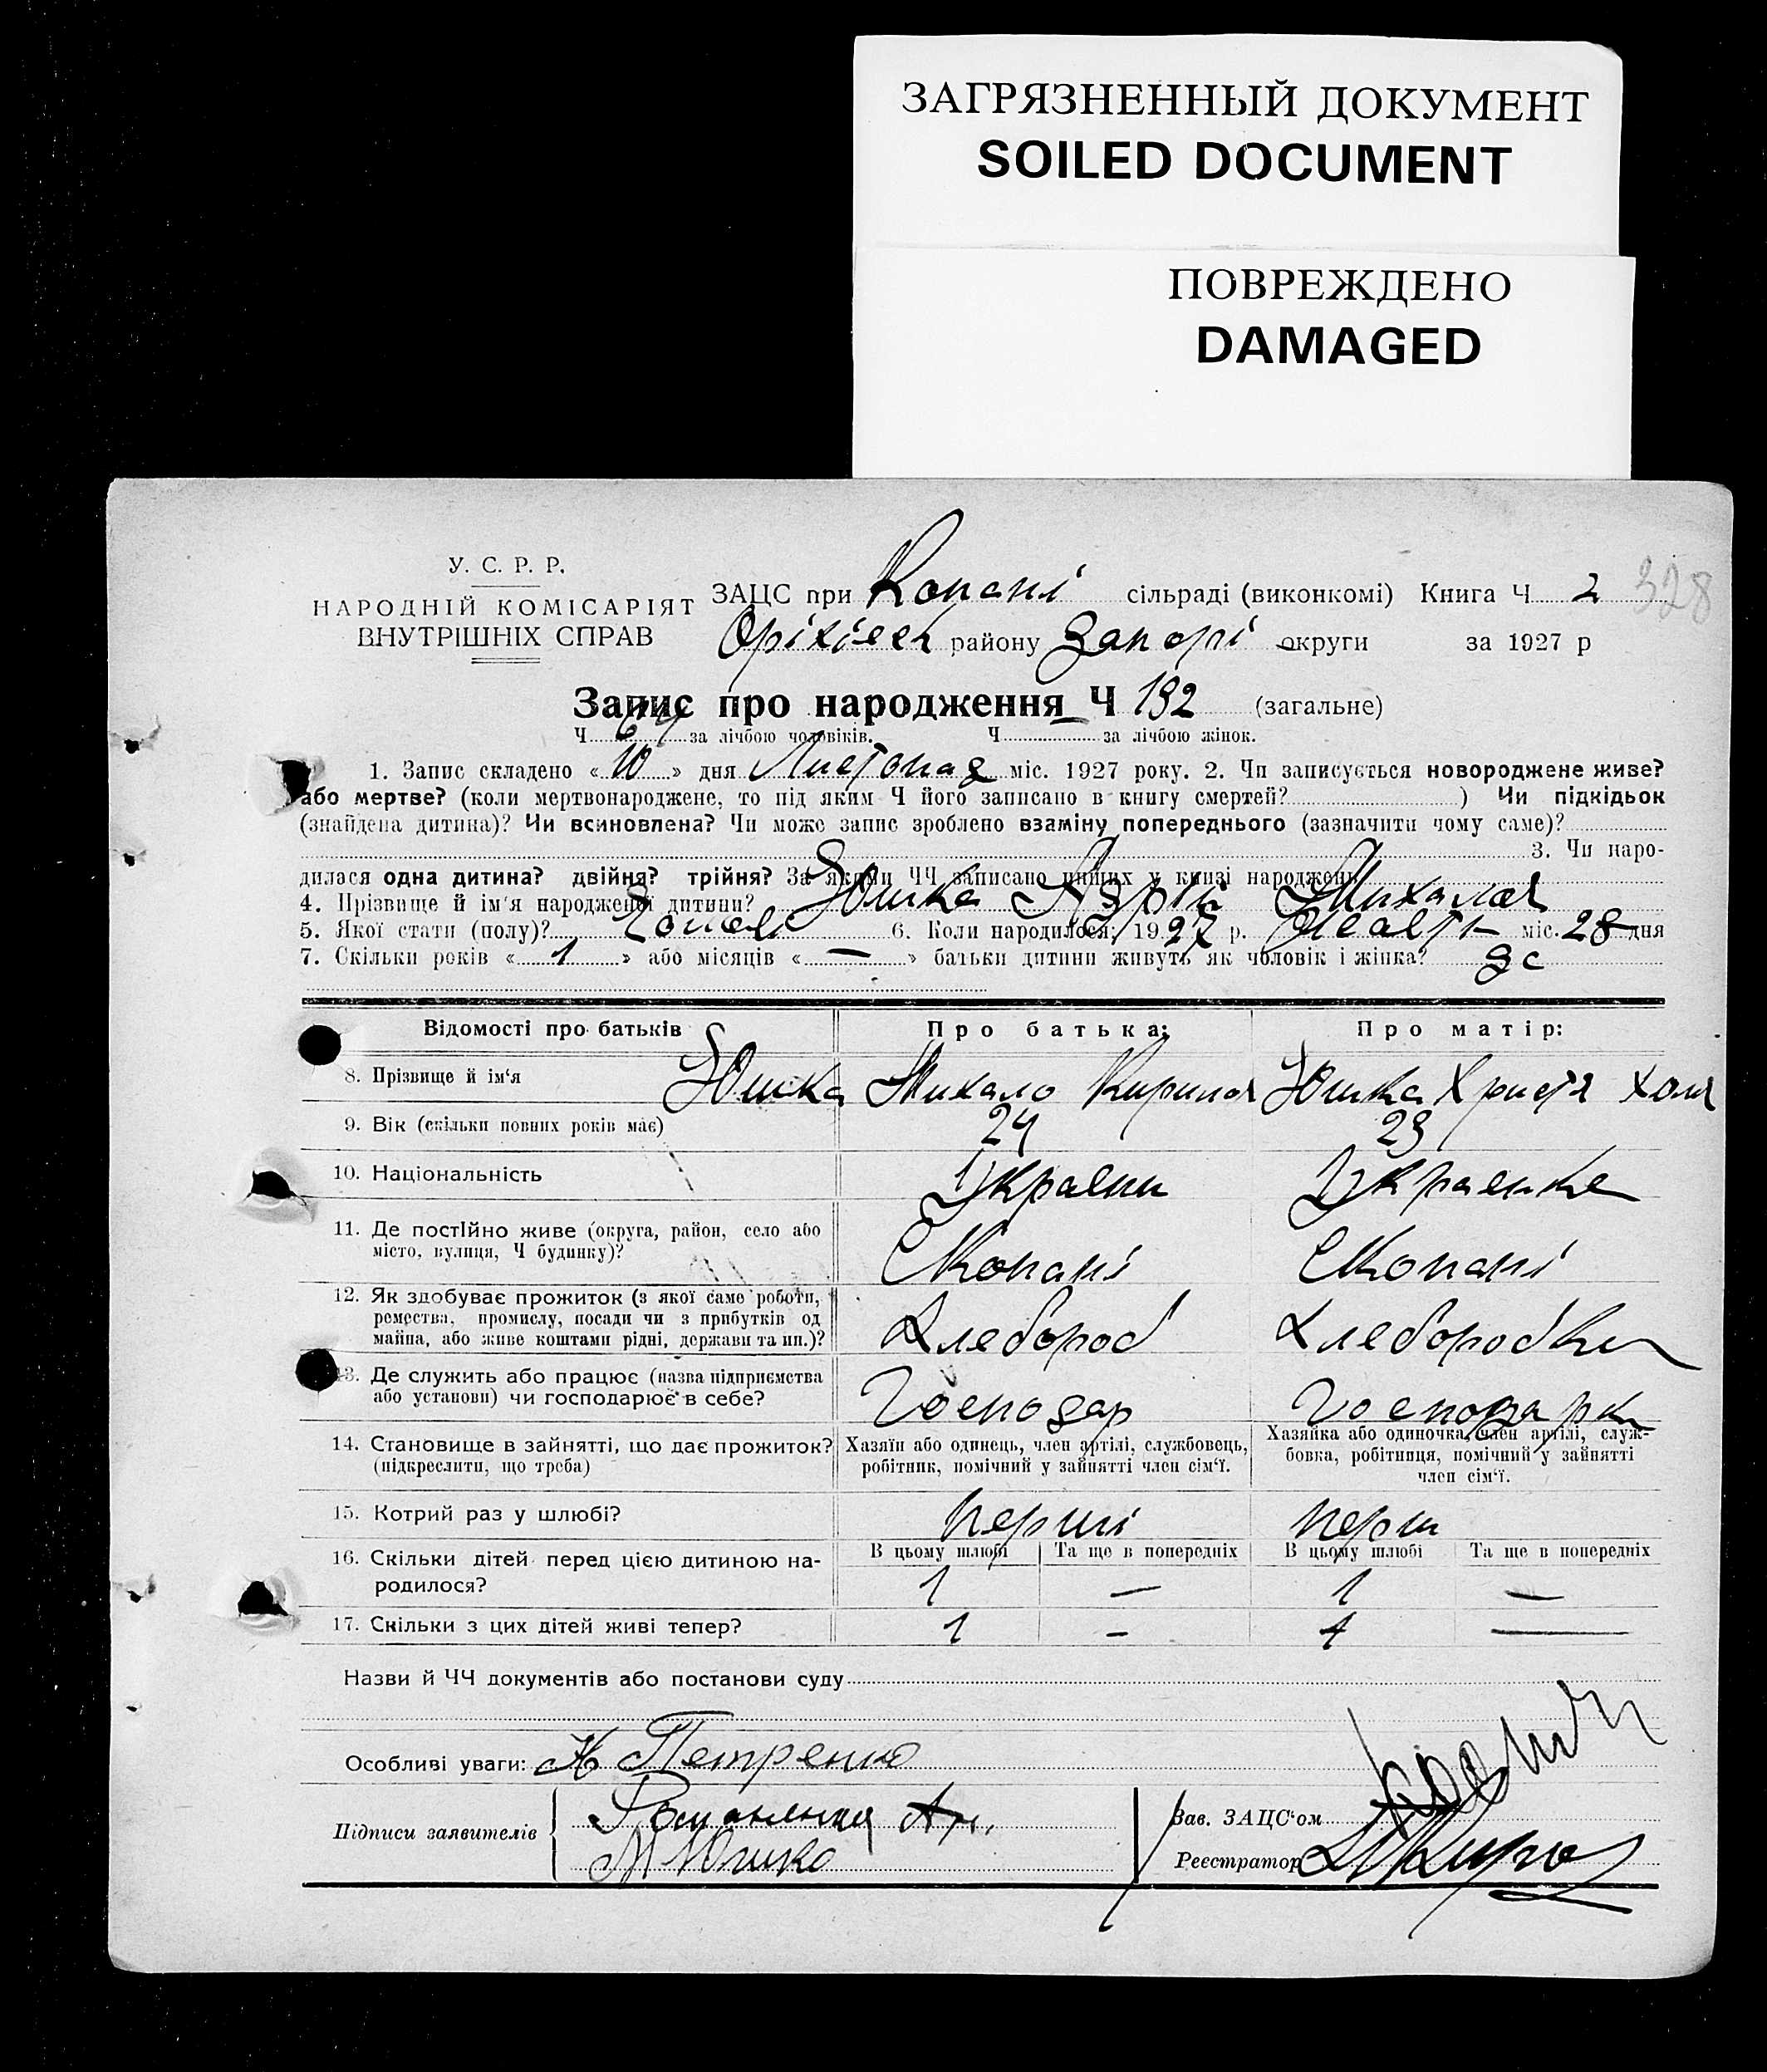 ЗАГРЯЗНЕННЫЙ ДОКУМЕНТ
SOILED DOCUMENT
ПОВРЕЖДЕНО
DAMAGED
328
У. С. Р. Р.
НАРОДНІЙ КОМІСАРІЯТ
ВНУТРІШНІХ СПРАВ
ЗАЦС при Копані сільраді (виконкомі) Книга Ч 2
Оріхівск району Запорі округи за 1927 р
Запис про народження Ч 192 (загальне)
Ч. за лічбою чоловіків. Ч. — за лічбою жінок.
1. Запис складено « 10 » дня Листопад міс. 1927 року. 2. Чи записується новороджене живе?
або мертве? (коли мертвонароджене, то під яким Ч його записано в книгу смертей? ) Чи підкідьок
(знайдена дитина)? Чи всиновлена? Чи може запис зроблено взаміну попереднього (зазначити чому саме)?
3. Чи наро-
дилася одна дитина? двійня? трійня? За якими ЧЧ записано инших у книзі народжень
4. Прізвище й ім'я народженої дитини? Юшка Михалов
5. Якої стати (полу)? 6. Коли народилося; 1927 р. міс. 28 дня
7. Скільки років « 1 » або місяців « — » батьки дитини живуть як чоловік і жінка?
Відомості про батьків Про батька: Про матір:
8. Прізвище й ім'я Юшка Михало Кирилов Юшка Христя
9. Вік (скільки повних років має) 24 23
10. Національність Украени Украенка
11. Де постІйно живе (округа, район, село або
місто, вулиця, Ч будинку)? С Копані С Копані
12. Як здобуває прожиток (з якої саме роботи,
ремества, промислу, посади чи з прибутків од
майна, або живе коштами рідні, держави та ин.)? Хлебороб Хлеборобка
13. Де служить або працює (назва підприємства
або установи) чи господарює в себе? Господар Господарка
14. Становище в зайнятті, що дає прожиток?
(підкреслити, що треба)
Хазяїн або одинець, член артілі, службовець,
робітник, помічний у зайнятті член сім'ї.
Хазяйка або одиночка, член артілі, служ-
бовка, робітниця, помічний у зайнятті
член сім'ї.
15. Котрий раз у шлюбі? перши перш
16. Скільки дітей перед цією дитиною на-
родилося?
В цьому шлюбі Та ще в попередніх В цьому шлюбі Та ще в попередніх
1 — 1 —
17. Скільки з цих дітей живі тепер? 1 — 1 —
Назви й ЧЧ документів або постанови суду
Особливі уваги: Н Петренко
Підписи заявителів
М Юшко
Зав. ЗАЦС'ом
Реєстратор